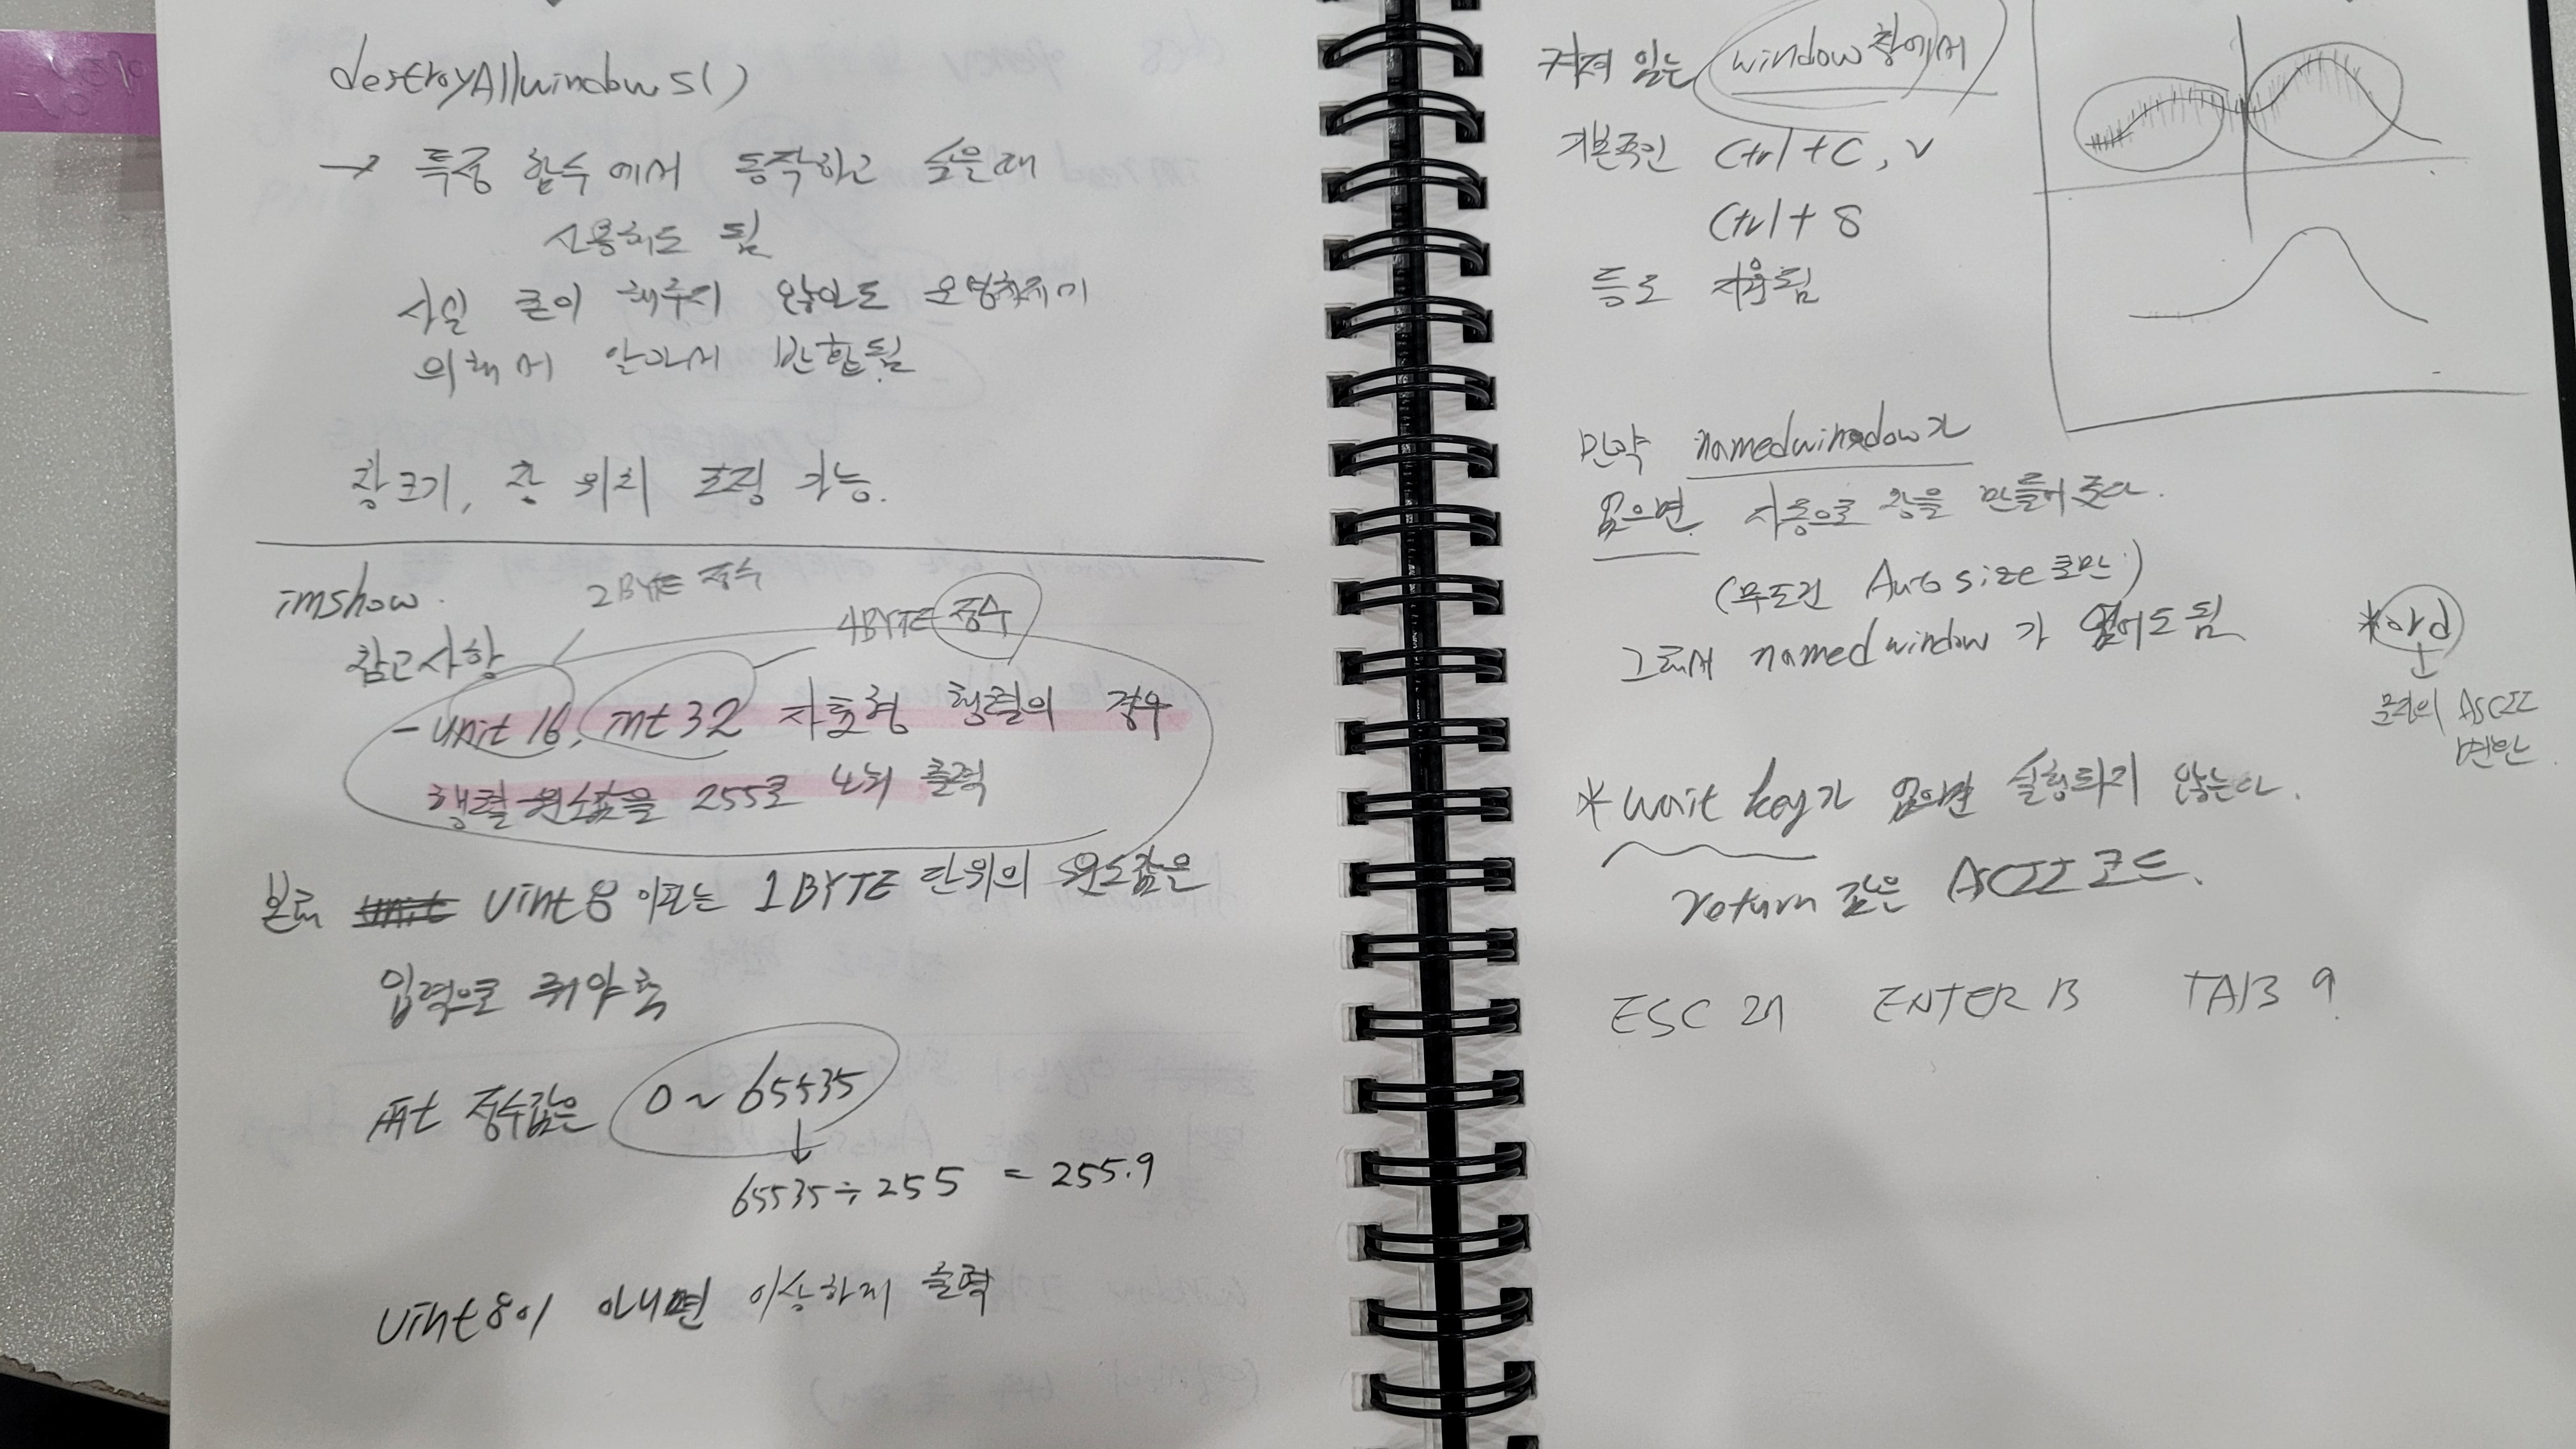 destroyAllwindows()
→ 특정 함수에서 동작하고 싶을때
사용해도 됨
사실 굳이 해주지 않아도 운영체제에
의해서 알아서 반환됨
창크기, 창 위치 조정 가능.
imshow.
2BYTE 정수
4BYTE 정수
참고사항
- unit 16, int 32 자료형 행렬의 경우
행렬 원소값을 255로 나눠 출력
본래 uint 8 이라는 1BYTE 단위의 원소값은
입력으로 줘야 함
정수값은 0 ~ 65535
↓
65535 ÷ 255 = 255.9
uint 8이 아니면 이상하게 출력
켜져 있는 window 창에서
기본적인 Ctrl + C, V
Ctrl + S
등로 지원됨
만약 namedwindow가
없으면 자동으로 창을 만들어 준다.
(무조건 Auto size로만)
그래서 named window 가 없어도 됨
*ord
↓
문자의 ASCII
변환
* wait key가 없으면 실행되지 않는다.
return 값은 ASCII 코드.
ESC 27 ENTER 13 TAB 9